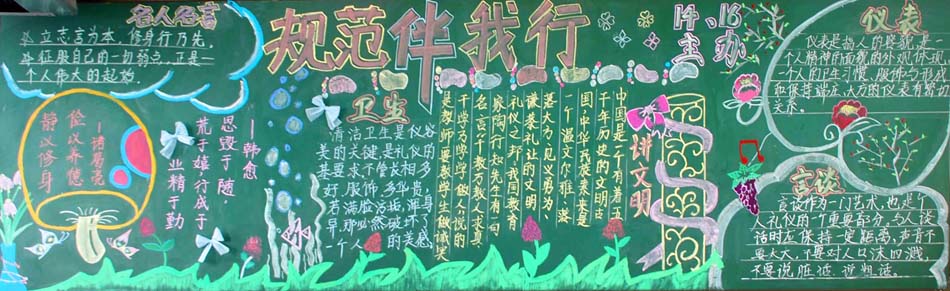 名人名言
立志言为本，修身行乃先。
征服自己的一切弱点，正是一
个人伟大的起始。
静以修身
俭以养德
—诸葛亮
业精于勤
荒于嬉行成于
思毁于随
—韩愈
规范伴我行
14、16
主办
卫生
清洁卫生是仪容
美的关键,是礼仪的
基要求。不管长相多
好,服饰多华贵,
若满脸污垢,浑身
异,那必然破坏了
一个人的美感
讲文明
中国是个有着五
千年历史的文明古
国,中华民族素来是
一个温文尔雅,落
落大方,见义勇为、
谦恭礼让的文明
礼仪之邦。我国教育
家陶行知先生有一句
名言:千教万教,教人求真,
千学万学,学做人。说的
是教师要教学生做诚实
仪表
仪表是指人的容貌,是一
个人精神面貌的外观体现,
一个人的卫生习惯、服饰与形
和保持端庄、大方的仪表有着密
关系。
言谈
言谈作为一门艺术,也是个
人礼仪的一个重要部分,与人谈
话时应保持一定距离,声音不
要太大,不要对人口沫四溅,
不要说脏话说粗话。